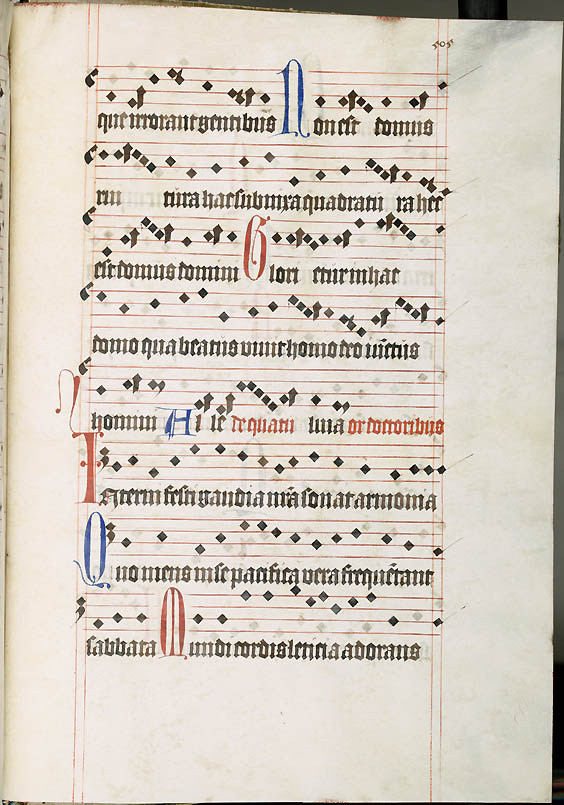 505
que irrorant gentibus Non est domus
rui tura hac subnixa quadratu ra hec
est domus domini Glori etur in hac
domo qua beatus vivit homo deo iunctus
homini Al le de quatu luia or doctoribus
Interni festi gaudia nra sonat armonia
Quo mens in se pacifica vera frequētant
sabbata Mundi cordis leticia adorans